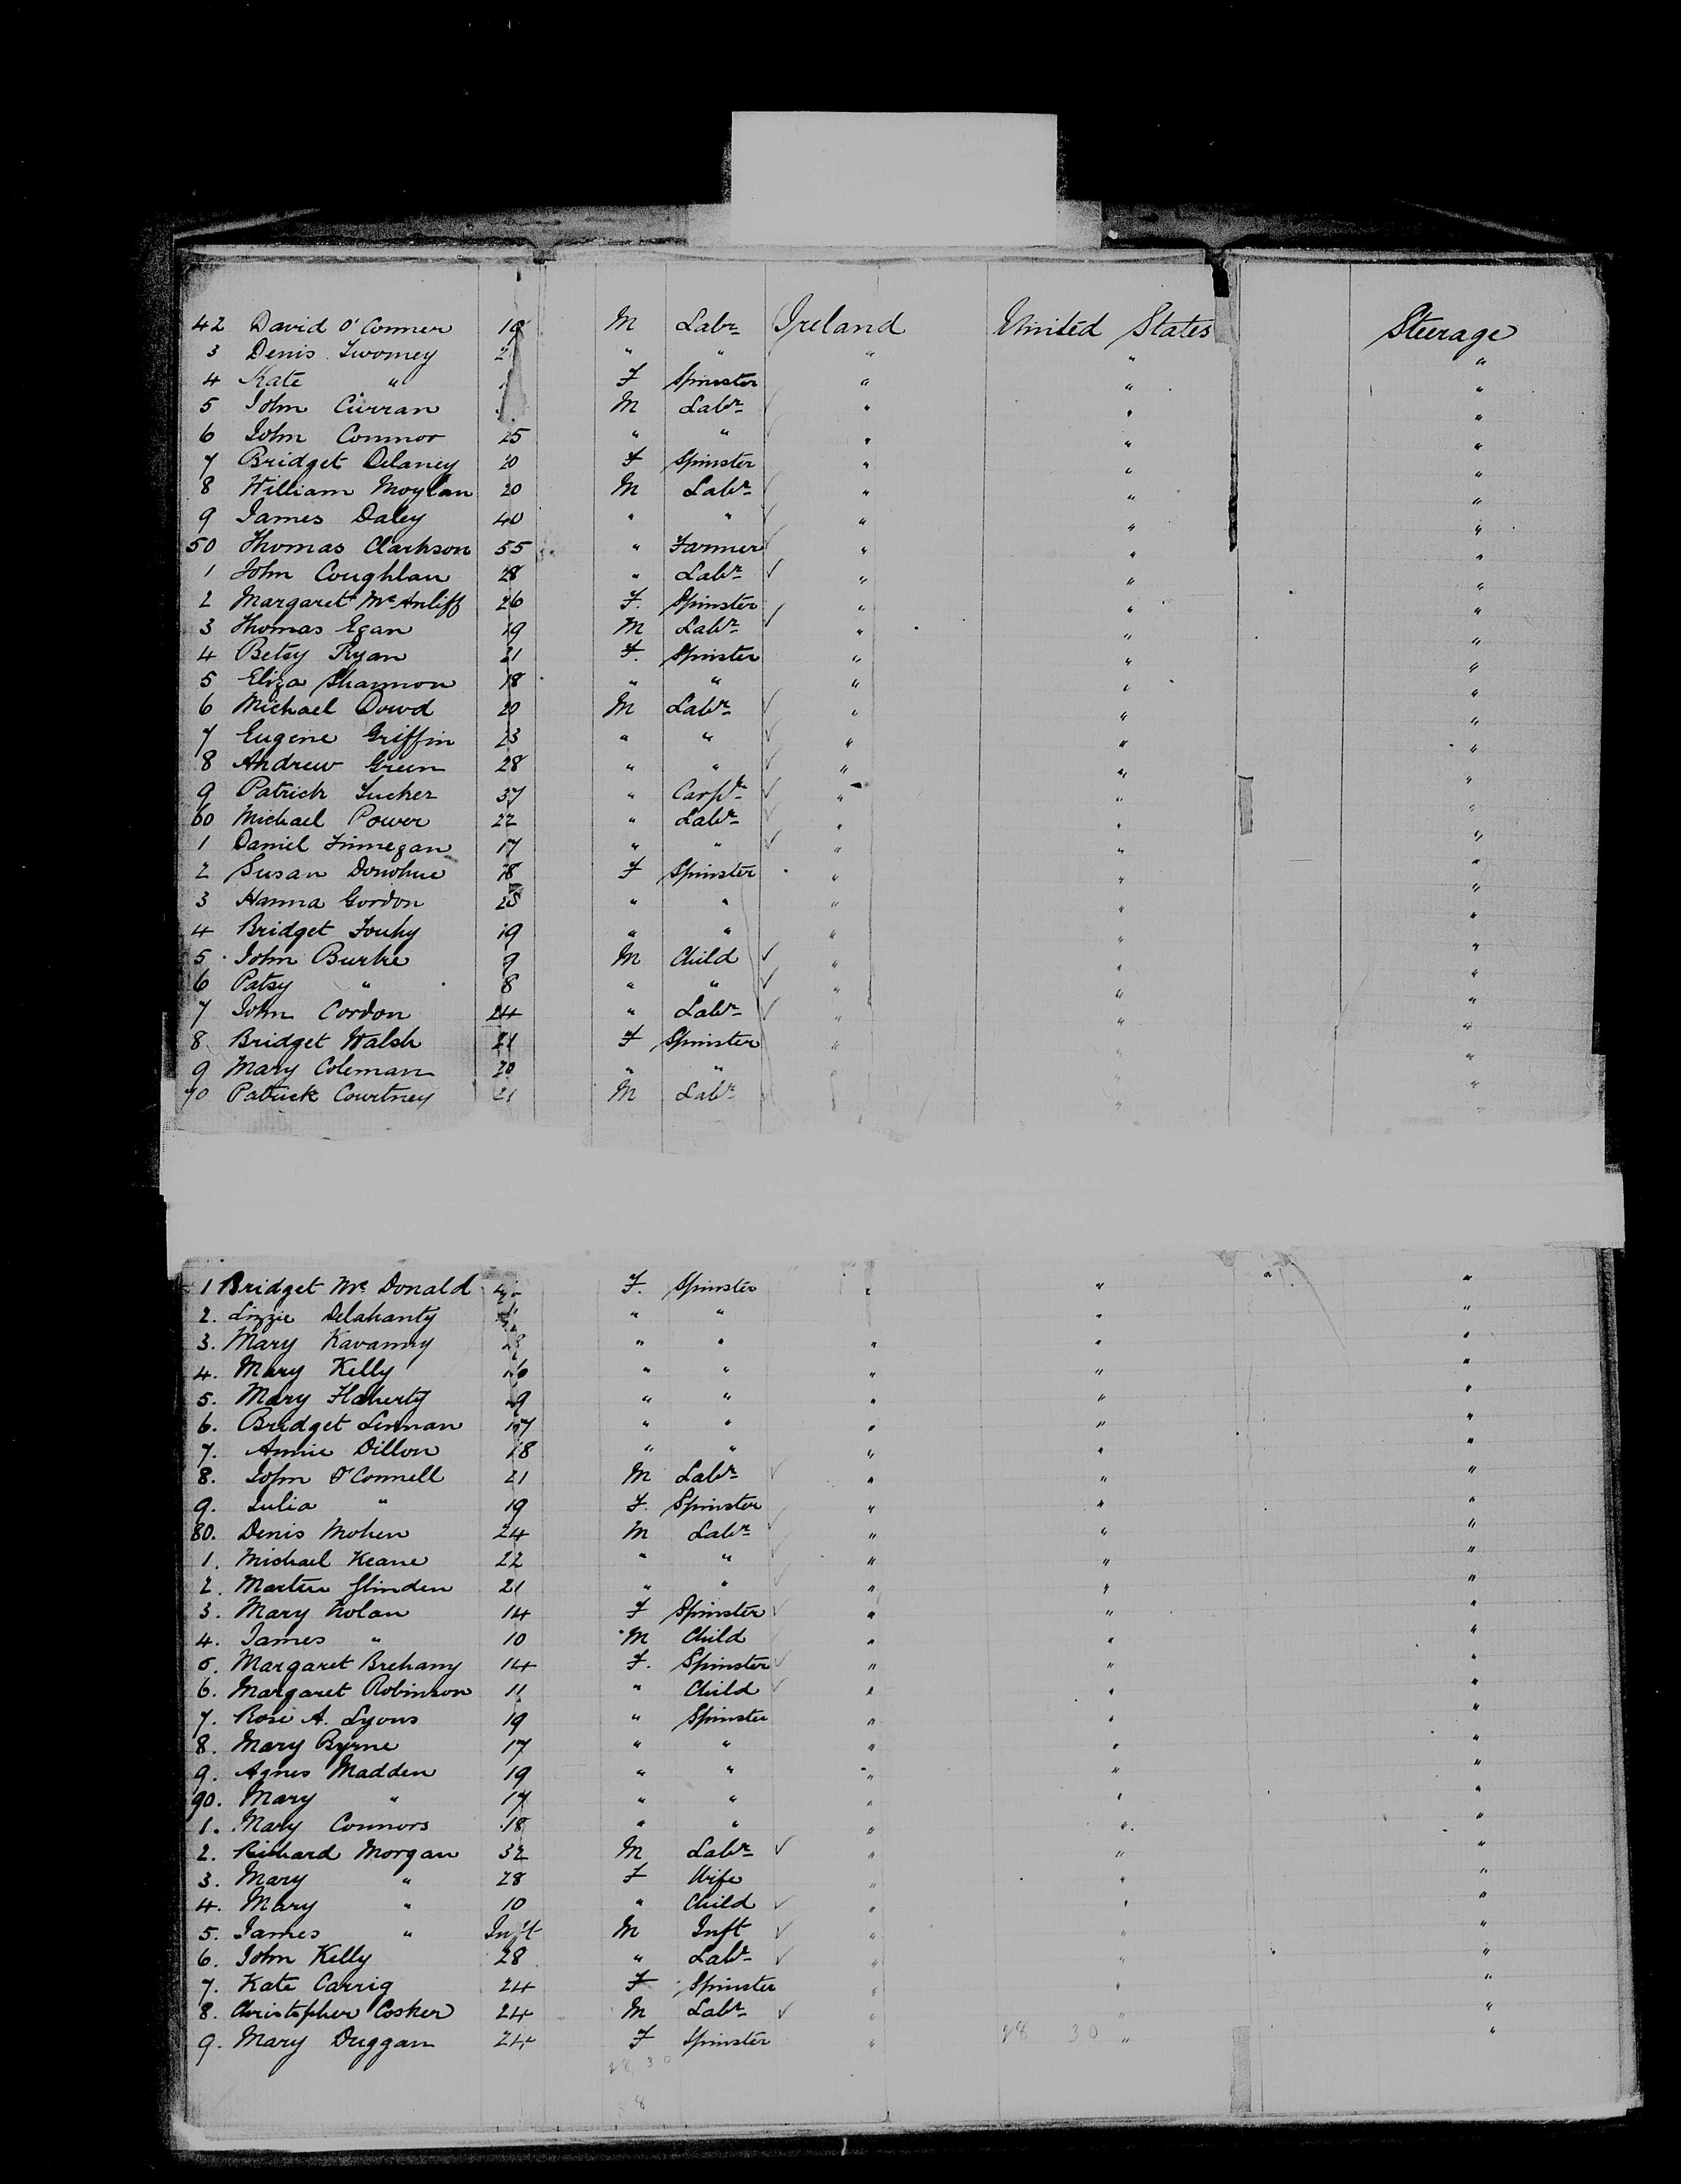 42 David O'Conner 19 M Labr Ireland United States Steerage
3 Denis Twomey " " " " "
4 Kate " F Spinster " " "
5 John Curran M Labr " " "
6 John Connor 25 " " " " "
7 Bridget Delaney 20 F Spinster " " "
8 William Moylan 20 M Labr " " "
9 James Daley 40 " " " " "
50 Thomas Clarkson 55 " Farmer " " "
1 John Coughlan 28 " Labr " " "
2 Margaret McAuliff 26 F. Spinster " " "
3 Thomas Egan 19 M Labr " " "
4 Betsy Ryan 21 F. Spinster " " "
5 Eliza Shannon 18 " " " " "
6 Michael Dowd 20 M Labr " " "
7 Eugene Griffin 23 " " " " "
8 Andrew Green 28 " " " " "
9 Patrick Tucker 37 " Carpr " " "
60 Michael Power 22 " Labr " " "
1 Daniel Finnegan 17 " " " " "
2 Susan Donohue 18 F Spinster " " "
3 Hanna Gordon " " " " "
4 Bridget Touhy 19 " " " " "
5 John Burke 9 M Child " " "
6 Patsy " 8 " " " " "
7 John Cordon 24 " Labr " " "
8 Bridget Walsh 21 F Spinster " " "
9 Mary Coleman 20 " " " "
70 Patrick Courtney 21 M Labr " "
1 Bridget Mc Donald F. Spinster " " "
2. Lizzie Delahanty " " " "
3. Mary Kavanny " " " " "
4. Mary Kelly 16 " " " " "
5. Mary Flaherty 19 " " " " "
6. Bridget Lennan 17 " " " " "
7. Annie Dillon 18 " " " " "
8. John O'Connell 21 M Labr " " "
9. Julia " 19 F. Spinster " " "
80. Denis Mohen 24 M Labr " " "
1. Michael Keane 22 " " " " "
2. Martin Glinden 21 " " " " "
3. Mary Nolan 14 F Spinster " " "
4. James " 10 M Child " " "
5. Margaret Brehany 14 F. Spinster " " "
6. Margaret Robinson 11 " Child " " "
7. Rose A. Lyons 19 " Spinster " " "
8. Mary Byrne 17 " " " " "
9. Agnes Madden 19 " " " " "
90. Mary " 17 " " " " "
1. Mary Connors 18 " " " " "
2. Richard Morgan 32 M Labr " " "
3. Mary " 28 F Wife " " "
4. Mary " 10 " Child " " "
5. James " Inft M Inft " " "
6. John Kelly 28 " Labr " " "
7. Kate Carrig 24 F Spinster " " "
8. Christopher Cosker 24 M Labr " " "
9. Mary Duggan 24 F Spinster " 28 30 " "
28 30
8